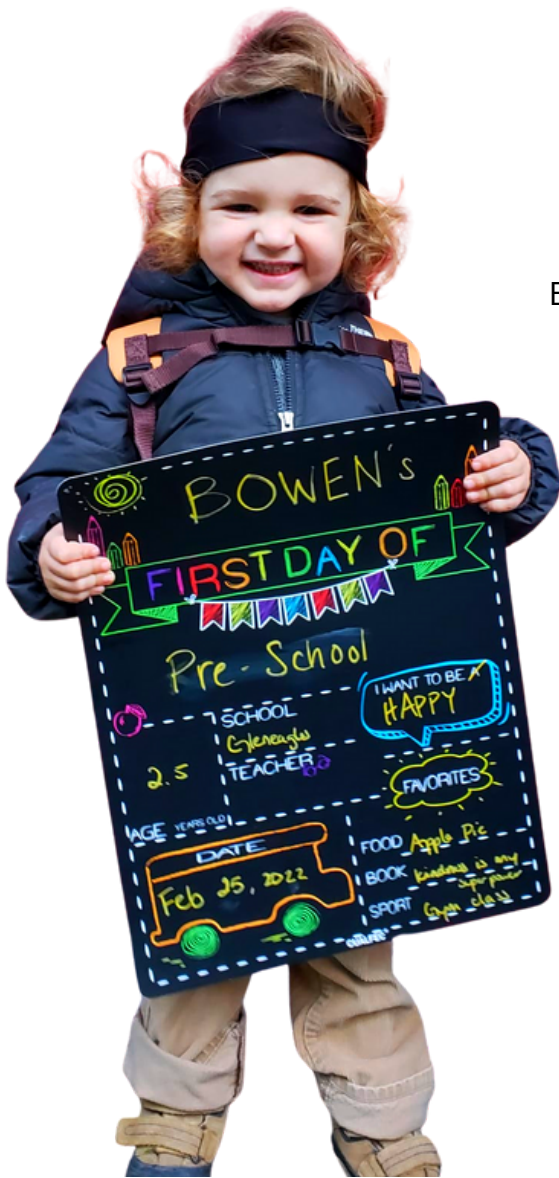 BOWEN's
FIRST DAY OF
Pre-School
I WANT TO BE A
HAPPY
SCHOOL
Gleneagles
TEACHER
2.5
AGE YEARS OLD
FAVORITES
DATE
Feb 25, 2022
FOOD Apple Pie
BOOK kindness is my
super power
SPORT Gym class
E